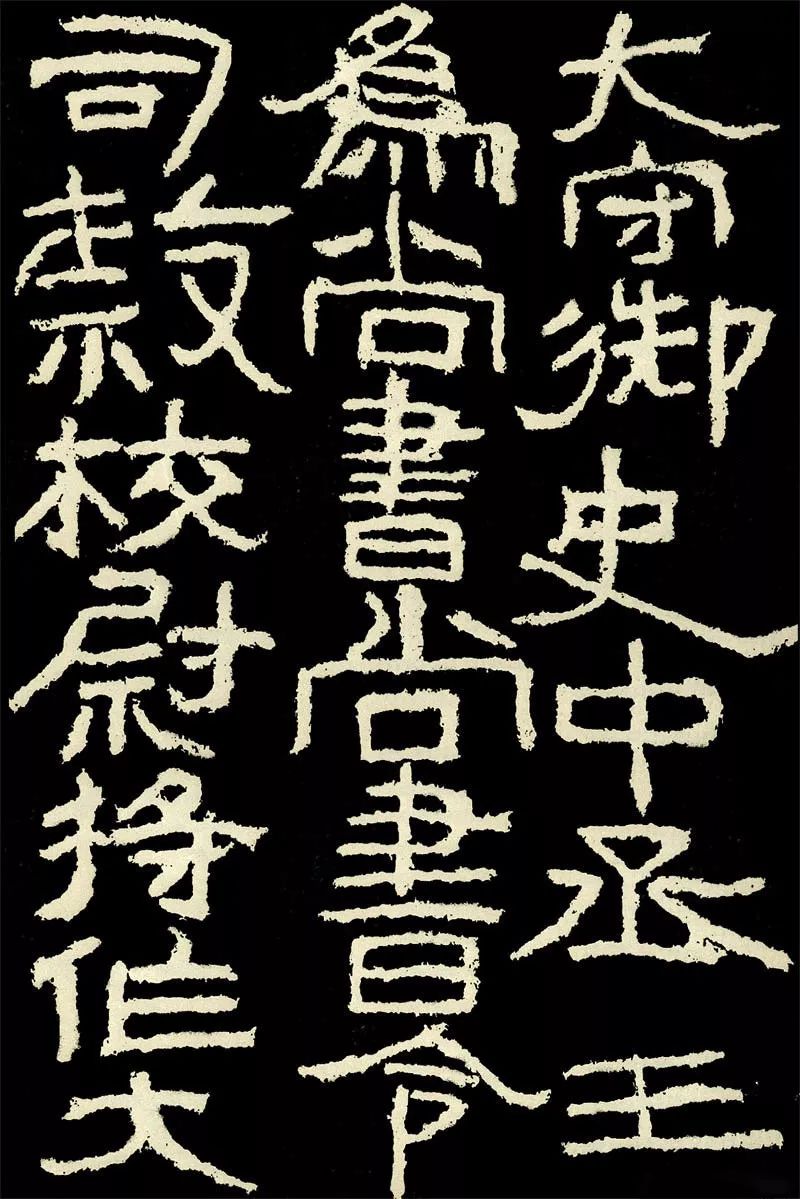 大守御史中丞王
為尚書尚書令
司隸校尉將作大